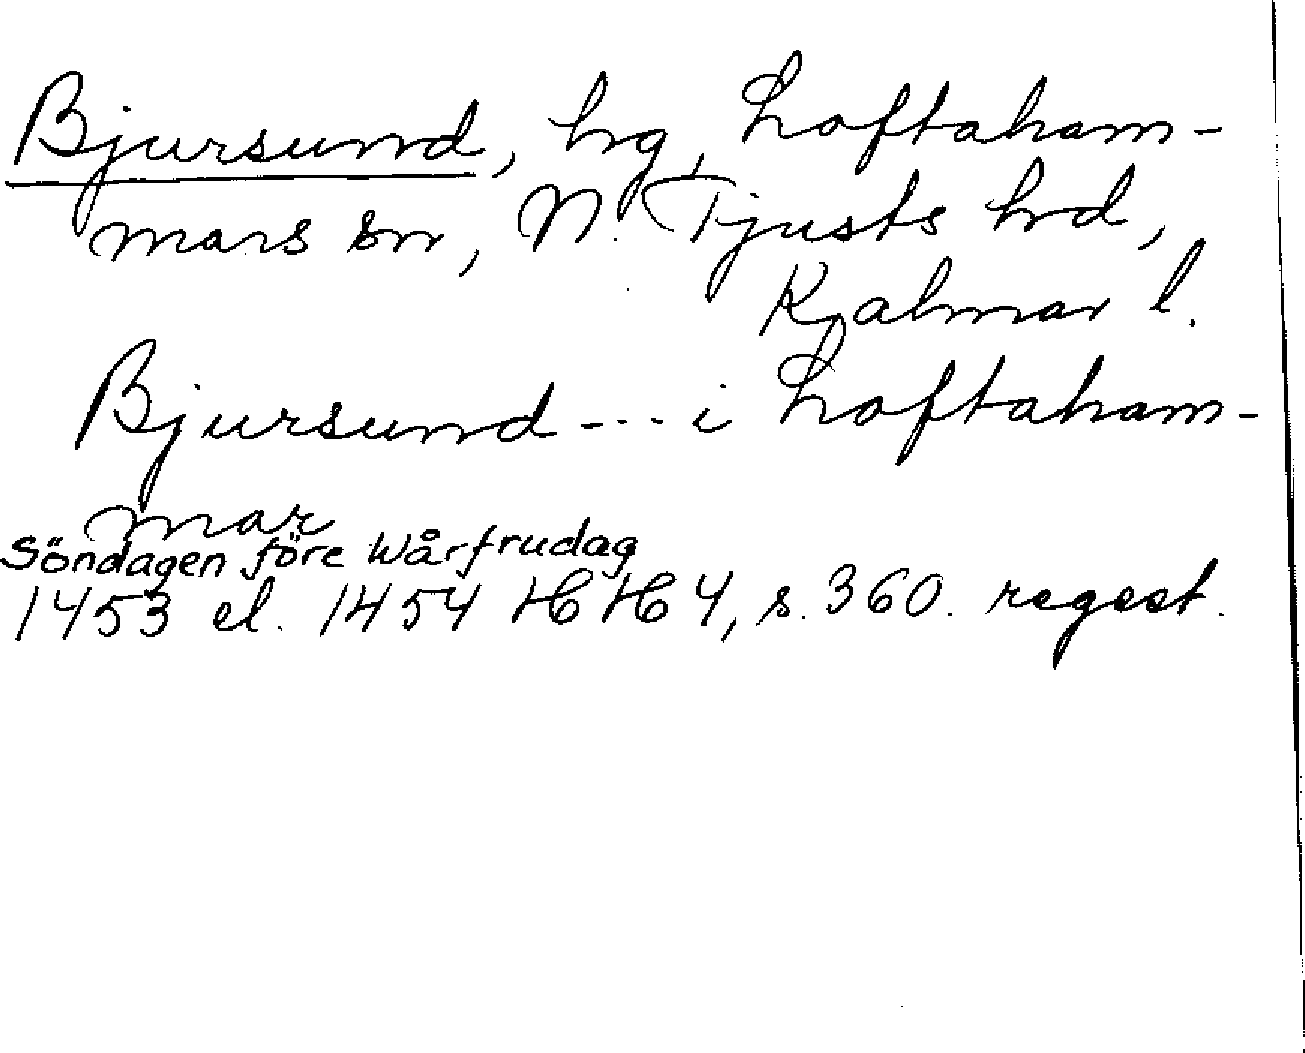 Bjursund, hg, Loftaham-
mars sn, N. Tjusts hd,
Kalmar l.
Bjursund --- i Loftaham-
mar
Söndagen före Wårfrudag
1453 el. 1454 HH 4, s. 360. regest.